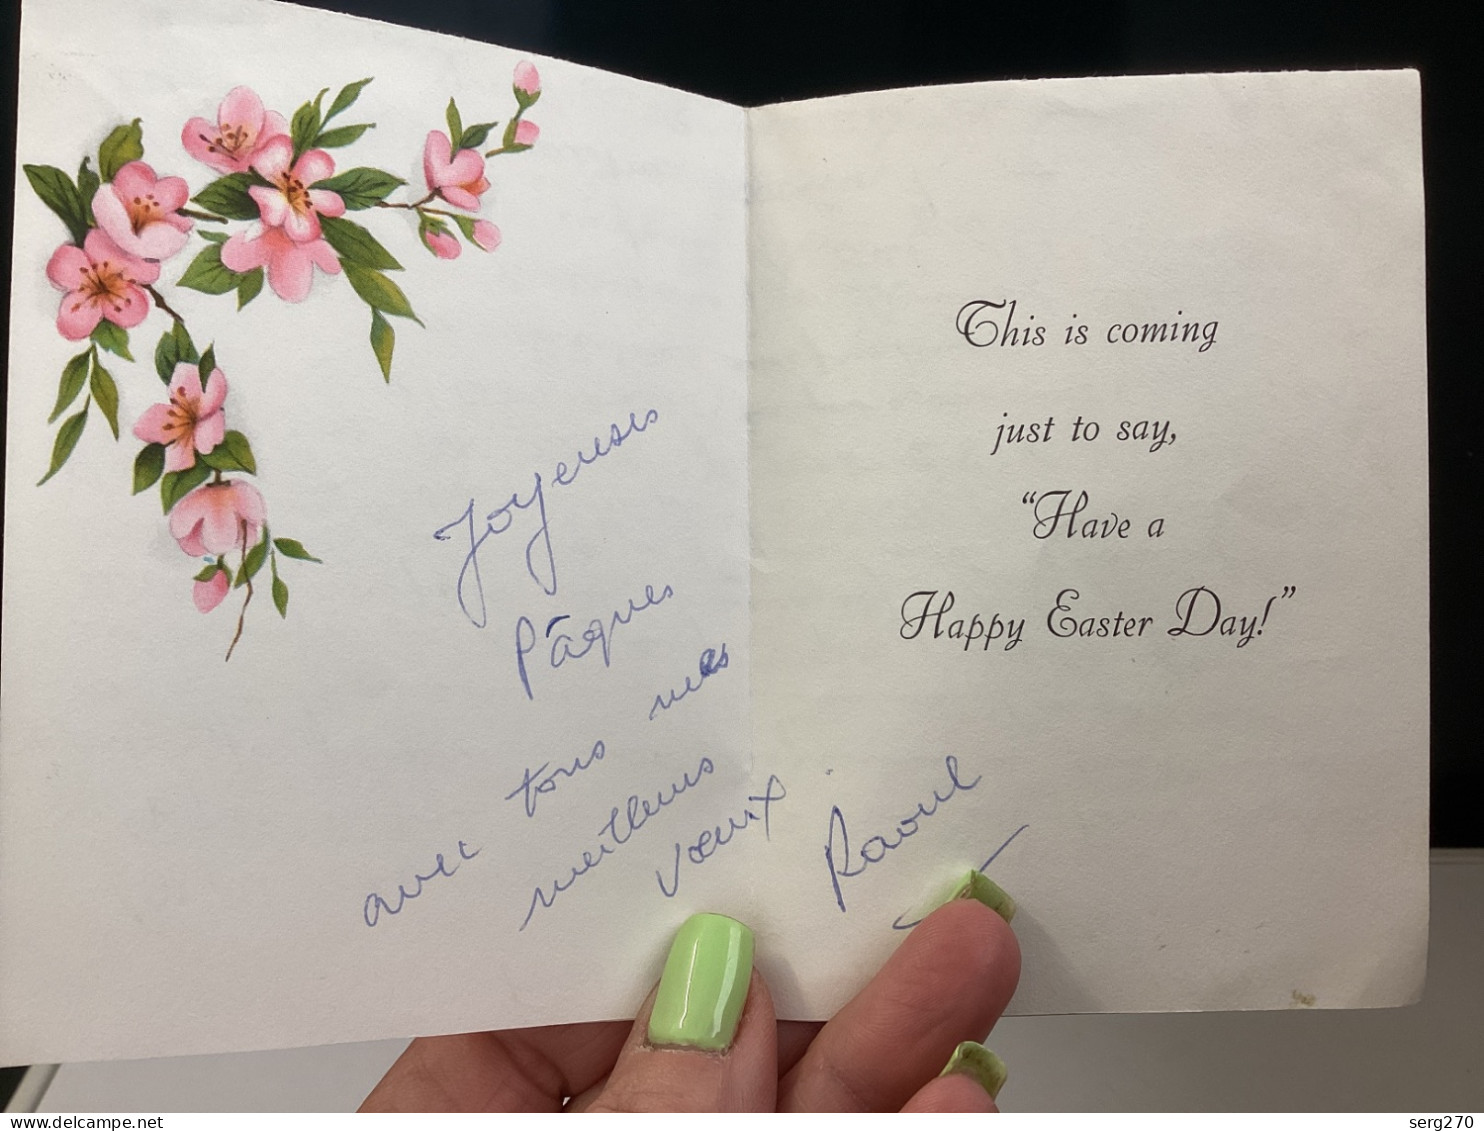 Joyeuses
Pâques
avec tous mes
meilleurs
vœux
Raoul
This is coming
just to say,
“Have a
Happy Easter Day!”
delcampe.net
serg270